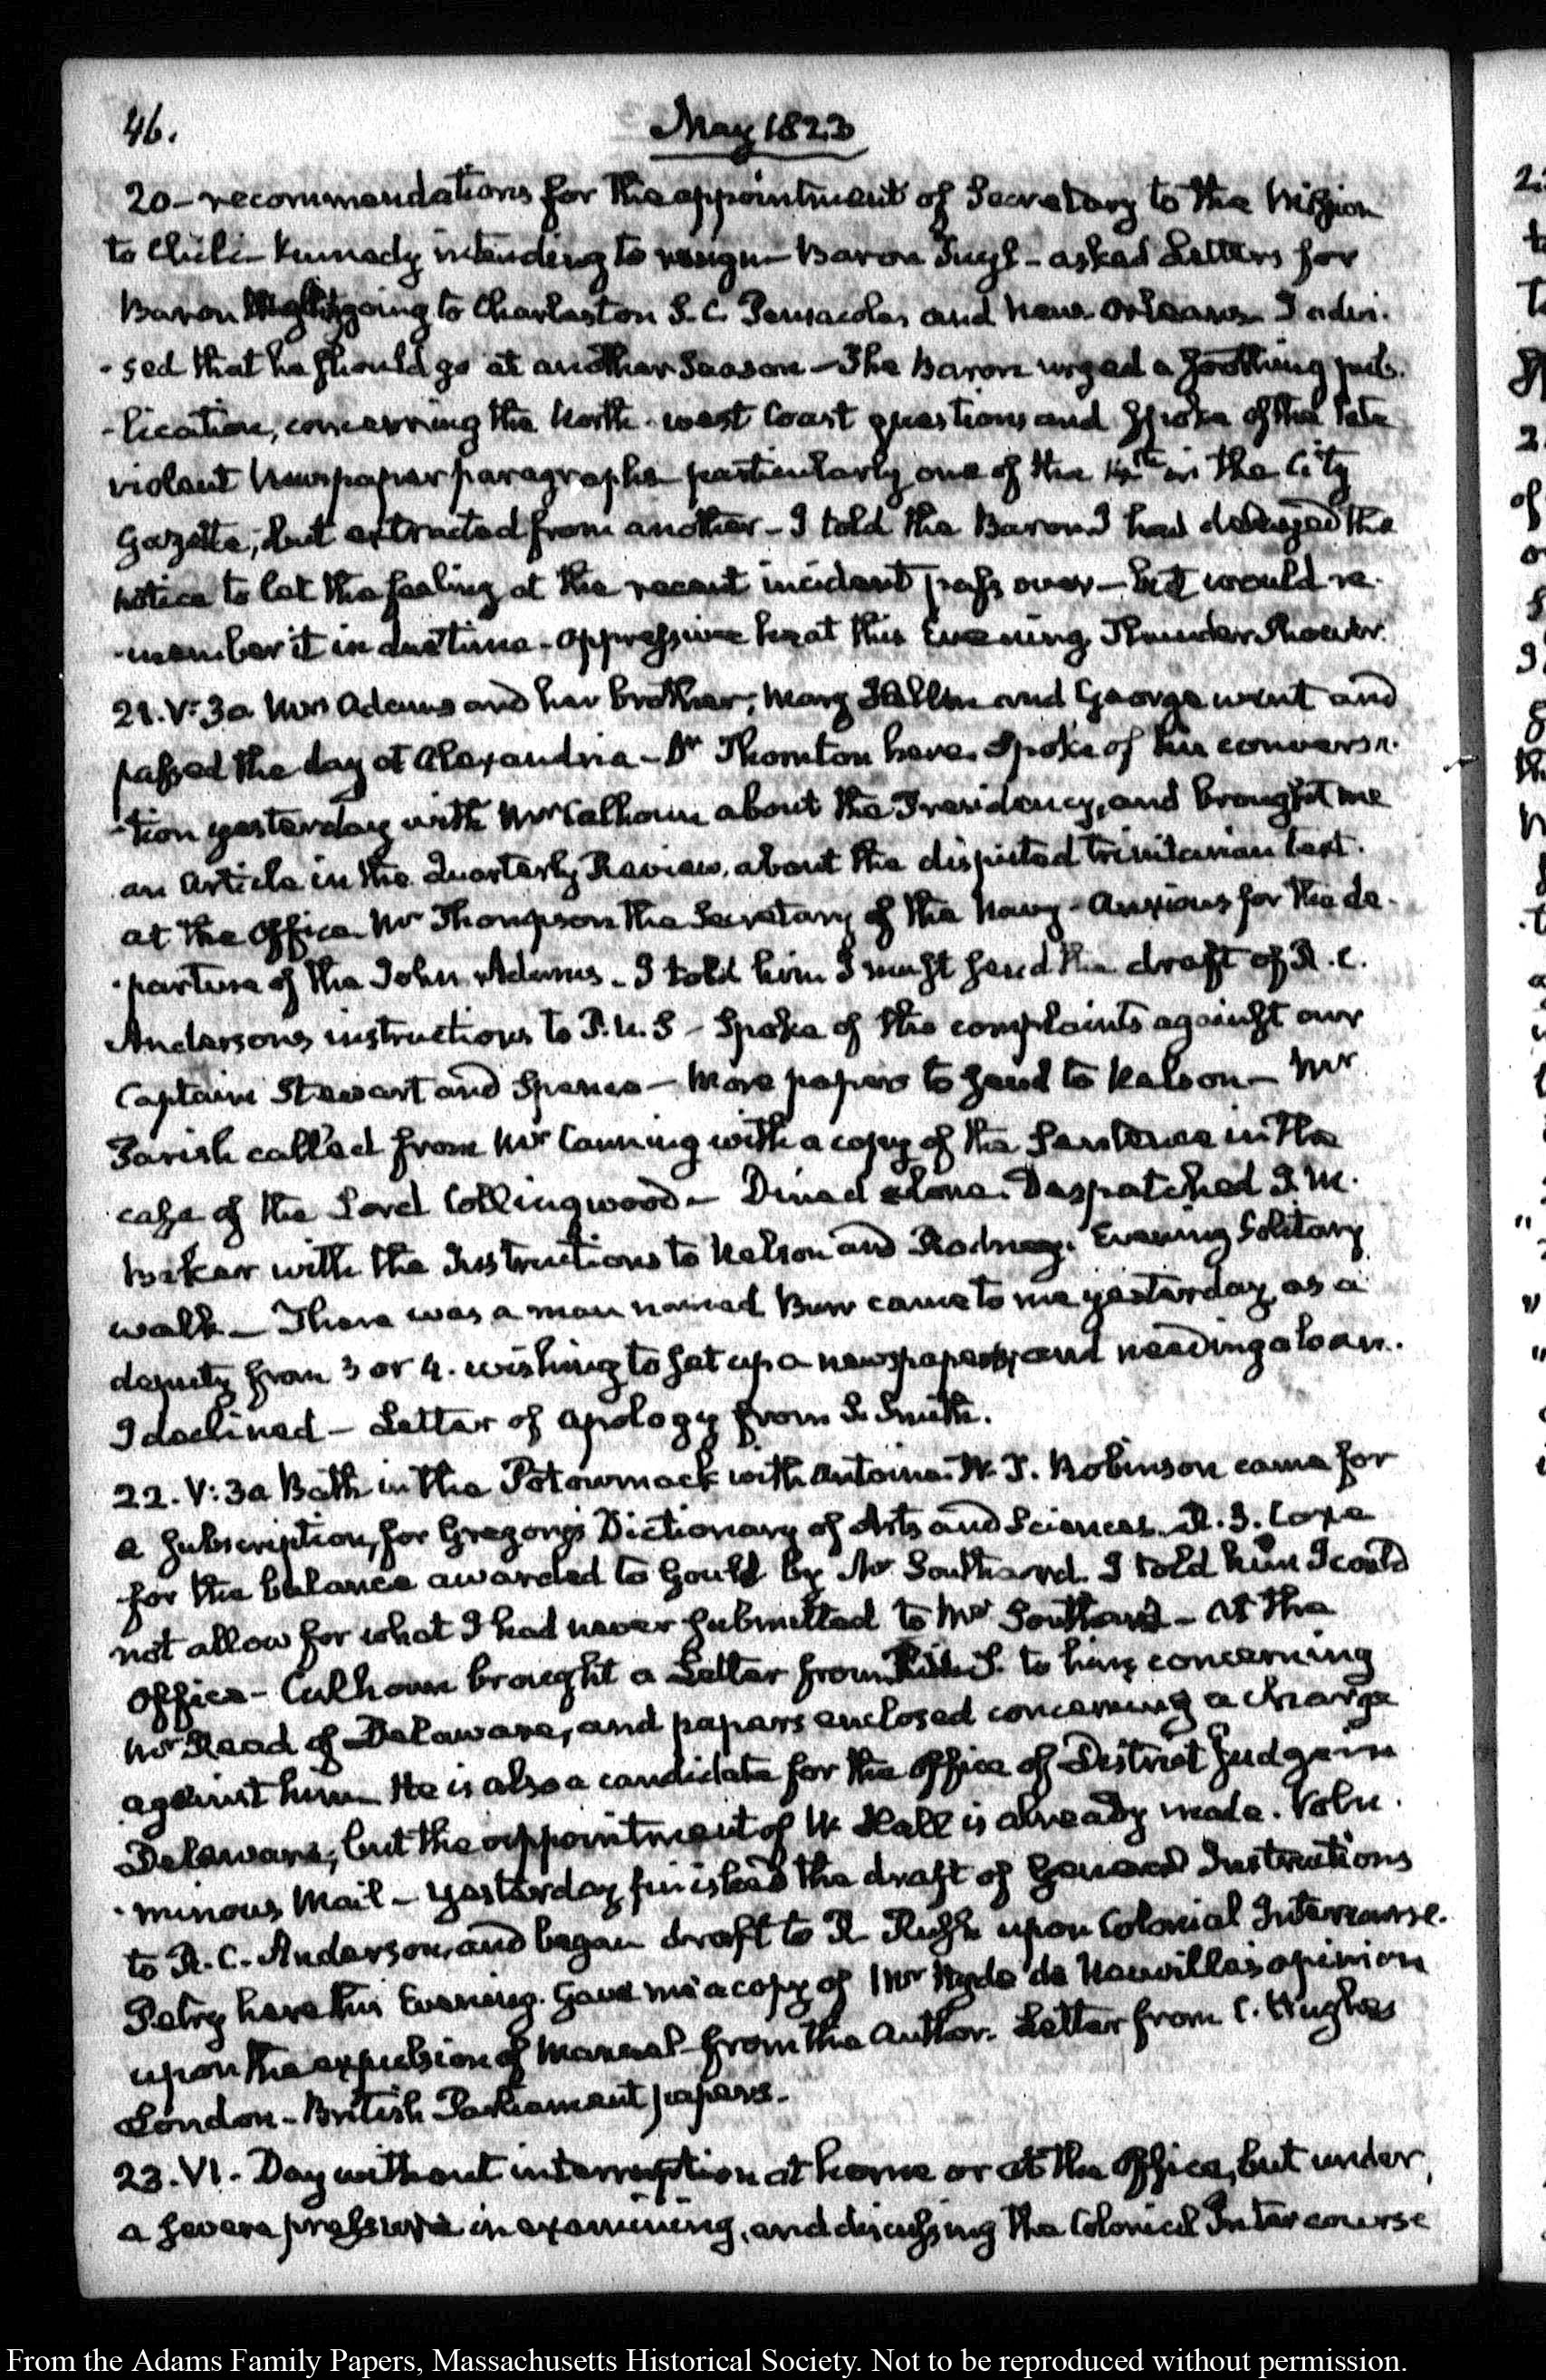 46.
May 1823
20 – recommendations for the appointment of Secretary to the Mission
to Chili – Kennedy intending to resign – Baron Tuyl – asked Letters for
Baron going to Charleston S.C. Pensacola, and New-Orleans. I advi-
-sed that he should go at another Season – The Baron urged a soothing pub-
-lication, concerning the North-west Coast questions and spoke of the late
violent Newspaper paragraphs particularly one of the 14th in the City
Gazette, but extracted from another – I told the Baron I had delayed the
notice to let the feeling at the recent incident pass over – but would re-
-member it in due time – Oppressive heat this Evening Thunder Shower.
21. V:30 Mrs Adams and her brother, Mary Hellen and George went and
passed the day at Alexandria – Dr Thornton here. Spoke of his conversa-
-tion yesterday with Mr Calhoun about the Presidency, and brought me
an Article in the Quarterly Review, about the disputed trinitarian text.
at the Office Mr Thompson the Secretary of the Navy – Anxious for the de-
-parture of the John Adams – I told him I must send the draft of R. C.
Anderson's instructions to P.U.S – Spoke of the complaints against our
Captains Stewart and Spence – More papers to send to Nelson – Mr
Parish called from Mr Canning with a copy of the Sentence in the
case of the Lord Collingwood – Dined alone. Despatched J. M.
Baker with the Instructions to Nelson and Rodney. Evening Solitary
walk – There was a man named Burr came to me yesterday, as a
deputy from 3 or 4. wishing to set up a newspaper, and needing a loan.
I declined – Letter of apology from S. Smith.
22. V:30 Bath in the Potowmack with Antoine. W. T. Robinson came for
a subscription, for Gregory's Dictionary of Arts and Sciences. R. S. Coxe
for the balance awarded to Gould by Mr Southard. I told him I could
not allow for what I had never submitted to Mr Southard – At the
Office – Calhoun brought a Letter from to him, concerning
Mr Read of Delaware, and papers enclosed concerning a charge
against him – He is also a candidate for the office of District Judge in
Delaware, but the appointment of W. Hall is already made. Volu-
-minous Mail – Yesterday finished the draft of General Instructions
to R. C. Anderson, and began draft to R. Rush upon Colonial Intercourse.
Petry here this Evening. Gave me a copy of Mr Hyde de Neuville's opinion
upon the expulsion of Manuel – from the Author. Letter from C. Hughes
London – British Parliament papers.
23. VI. Day without interruption at home or at the Office, but under
a severe pressure in examining, and discussing the Colonial Intercourse
From the Adams Family Papers, Massachusetts Historical Society. Not to be reproduced without permission.